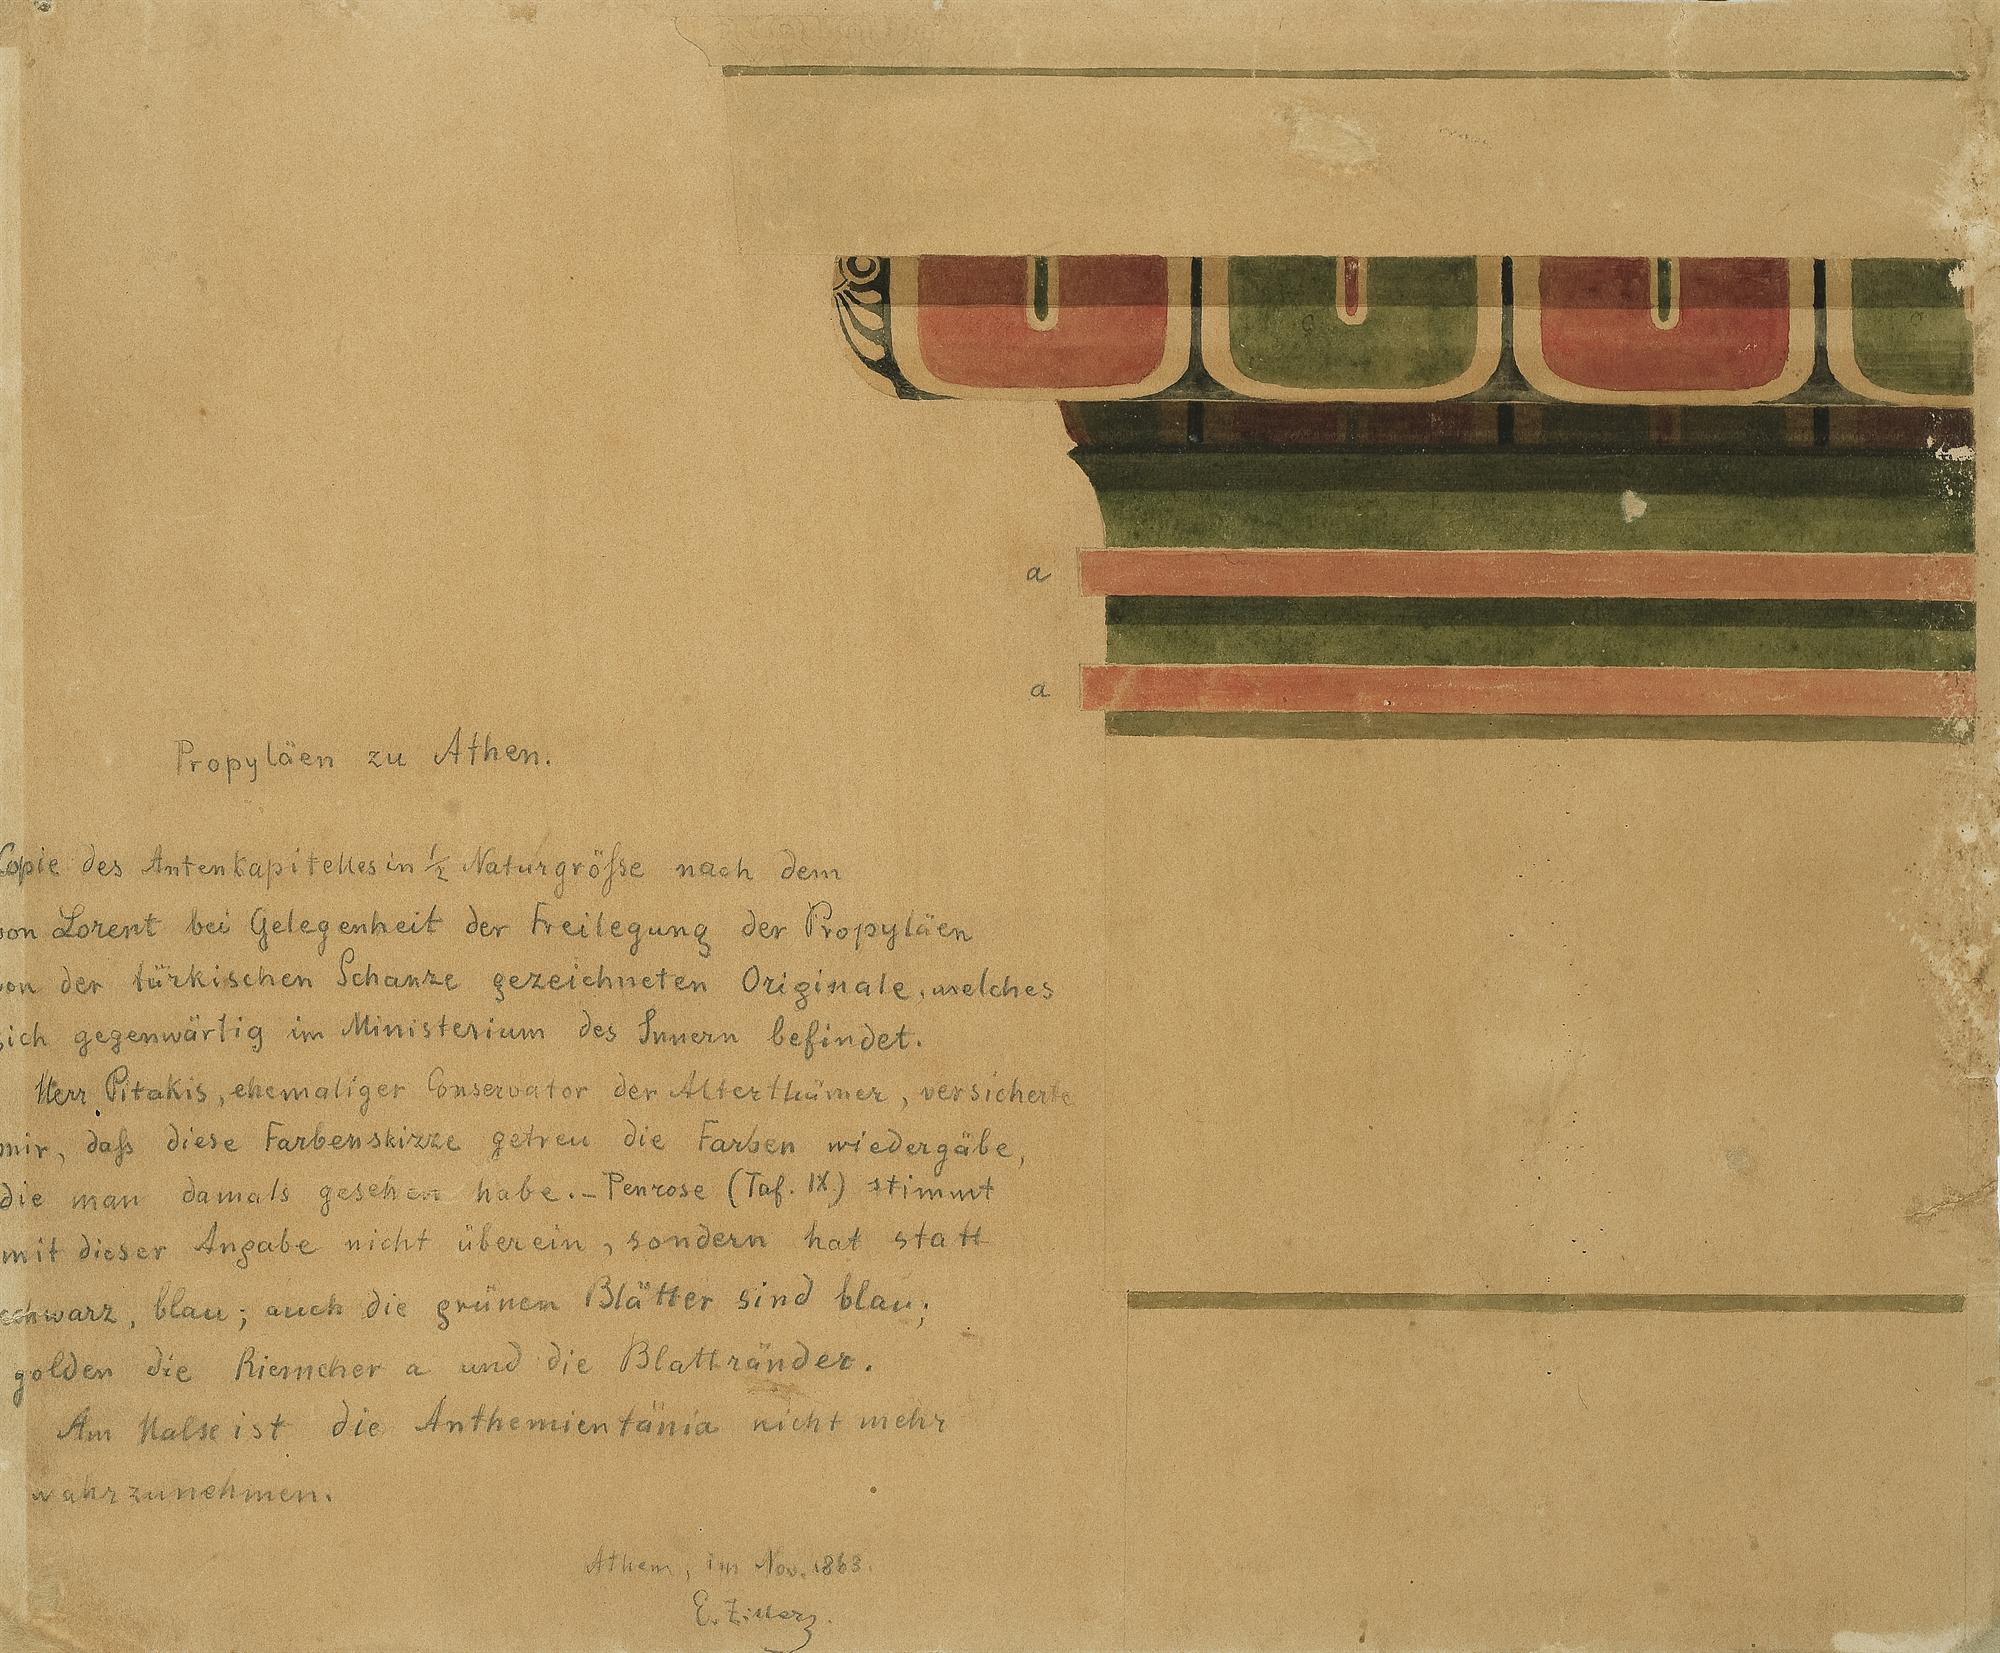 a
a
Propyläen zu Athen.
Copie des Antenkapitelles in 1/2 Naturgrösse nach dem
von Lorent bei Gelegenheit der Freilegung der Propyläen
von der türkischen Schanze gezeichneten Originale, welches
sich gegenwärtig im Ministerium des Innern befindet.
Herr Pitakis, ehemaliger Conservator der Alterthümer, versicherte
mir, dass diese Farbenskizze getreu die Farben wiedergäbe,
die man damals gesehen habe. – Penrose (Taf. IX.) stimmt
mit dieser Angabe nicht überein, sondern hat statt
schwarz, blau; auch die grünen Blätter sind blau;
golden die Riemchen a und die Blattränder.
Am Halse ist die Anthemientänia nicht mehr
wahrzunehmen.
Athen, im Nov. 1863.
E. Ziller